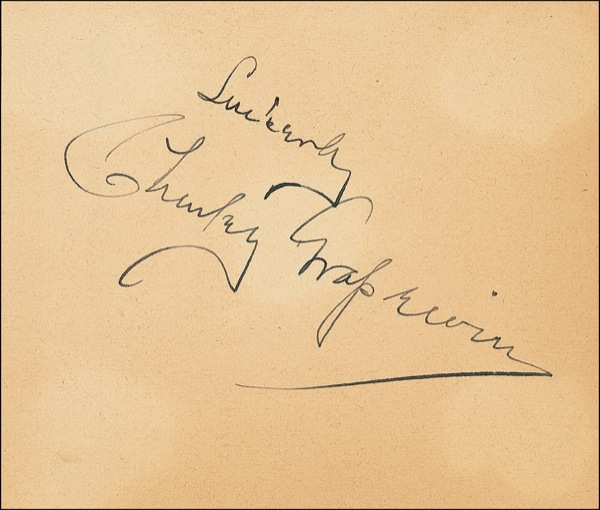 Sincerely
Charley Grapewin